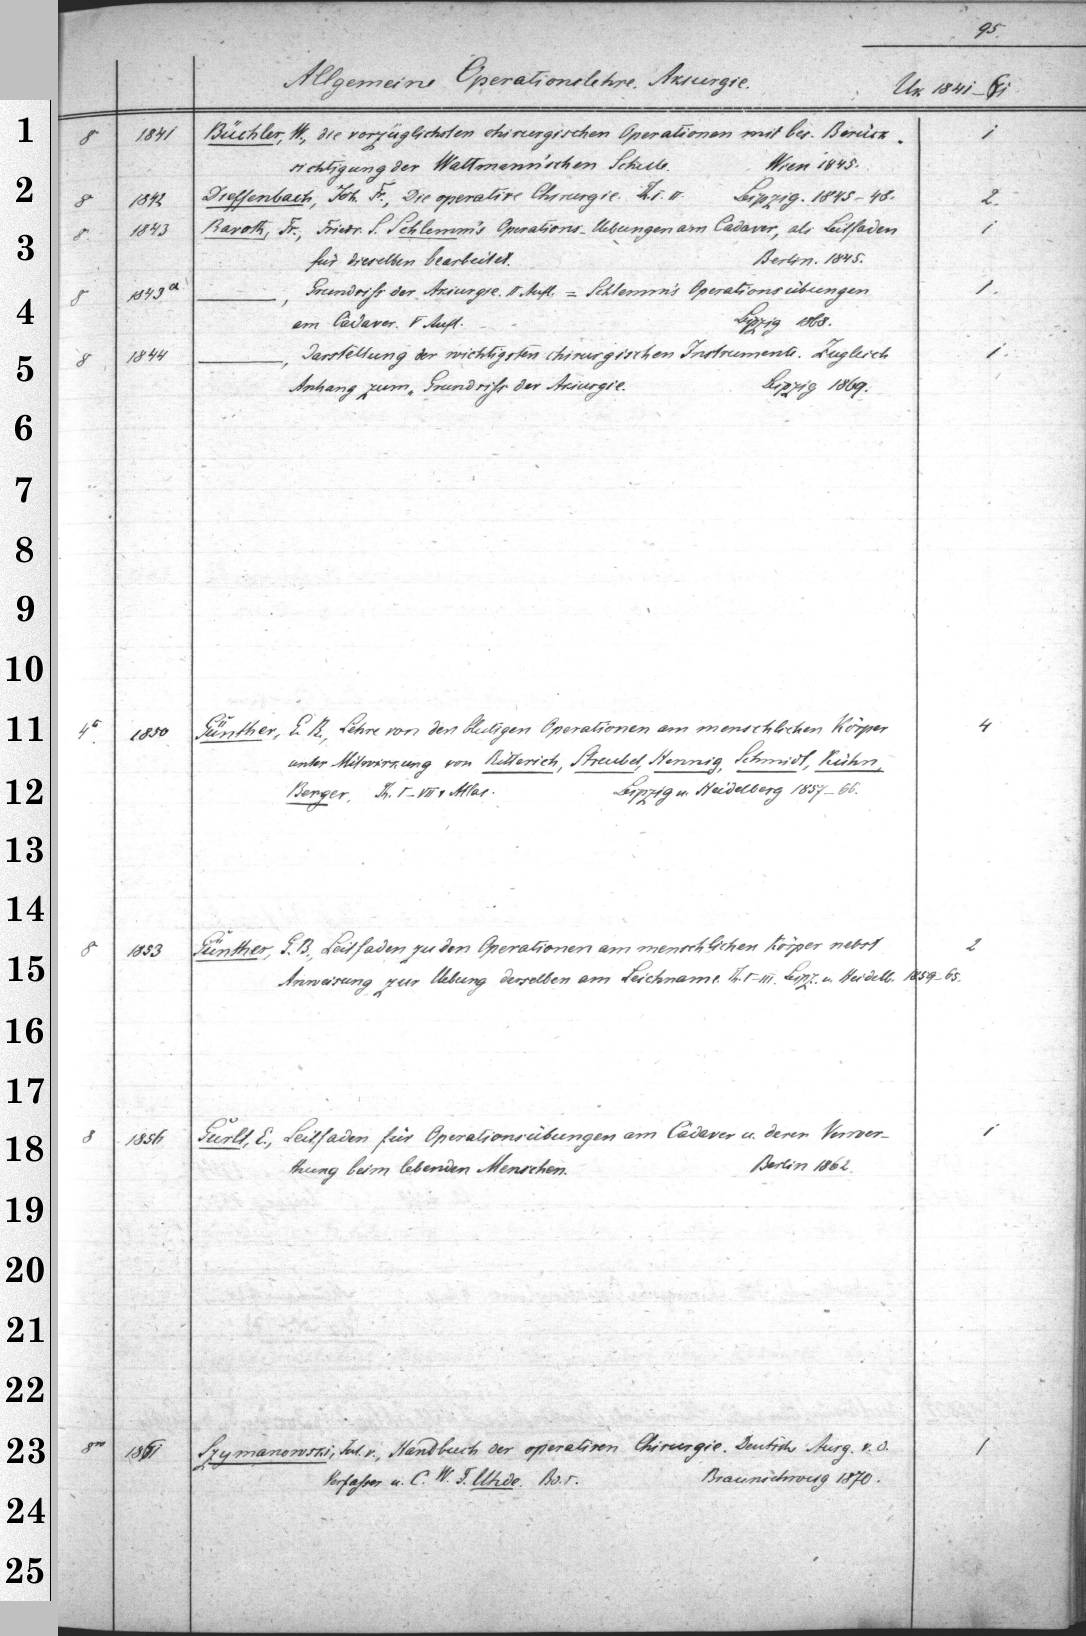 95.
Allgemeine Operationslehre. Akiurgie. Ux 1841–61
1 8 1841 Büchler, W., die vorzüglichsten chirurgischen Operationen mit bes. Berück- 1
sichtigung der Wattmann'schen Schule. Wien 1845.
2 8 1842 Dieffenbach, Joh. Fr., Die operative Chirurgie. Th. I. II. Leipzig. 1845–48. 2.
3 8. 1843 Ravoth, Fr., Friedr. S. Schlemm's Operations-Uebungen am Cadaver, als Leitfaden 1
für dieselben bearbeitet. Berlin. 1845.
4 8 1843a ———, Grundriſs der Akiurgie. II Aufl. = Schlemm's Operationsübungen 1.
am Cadaver. V Aufl. Leipzig 1868.
5 8 1844 ———, Darstellung der wichtigsten chirurgischen Instrumente. Zugleich 1.
Anhang zum „Grundriſs der Akiurgie. Leipzig 1869.
6
7
8
9
10
11 4to. 1850 Günther, G. B., Lehre von den blutigen Operationen am menschlichen Körper 4
unter Mitwirkung von Ritterich, Streubel, Hennig, Schmidt, Kühn,
12 Berger. Th. I–VII + Atlas. Leipzig u. Heidelberg 1857–66.
13
14
8 1853 Günther, G. B., Leitfaden zu den Operationen am menschlichen Körper nebst 2
15 Anweisung zur Uebung derselben am Leichname. Th. I–III. Leipz. u. Heidelb. 1859–65.
16
17
18 8 1856 Gurlt, E., Leitfaden für Operationsübungen am Cadaver u. deren Verwer- 1
thung beim lebenden Menschen. Berlin 1862.
19
20
21
22
23 8vo 1861 Szymanowski, Jul. v., Handbuch der operativen Chirurgie. Deutsche Ausg. v. d. 1
Verfasser u. C. W. F. Uhde. Bd. I. Braunschweig 1870.
24
25